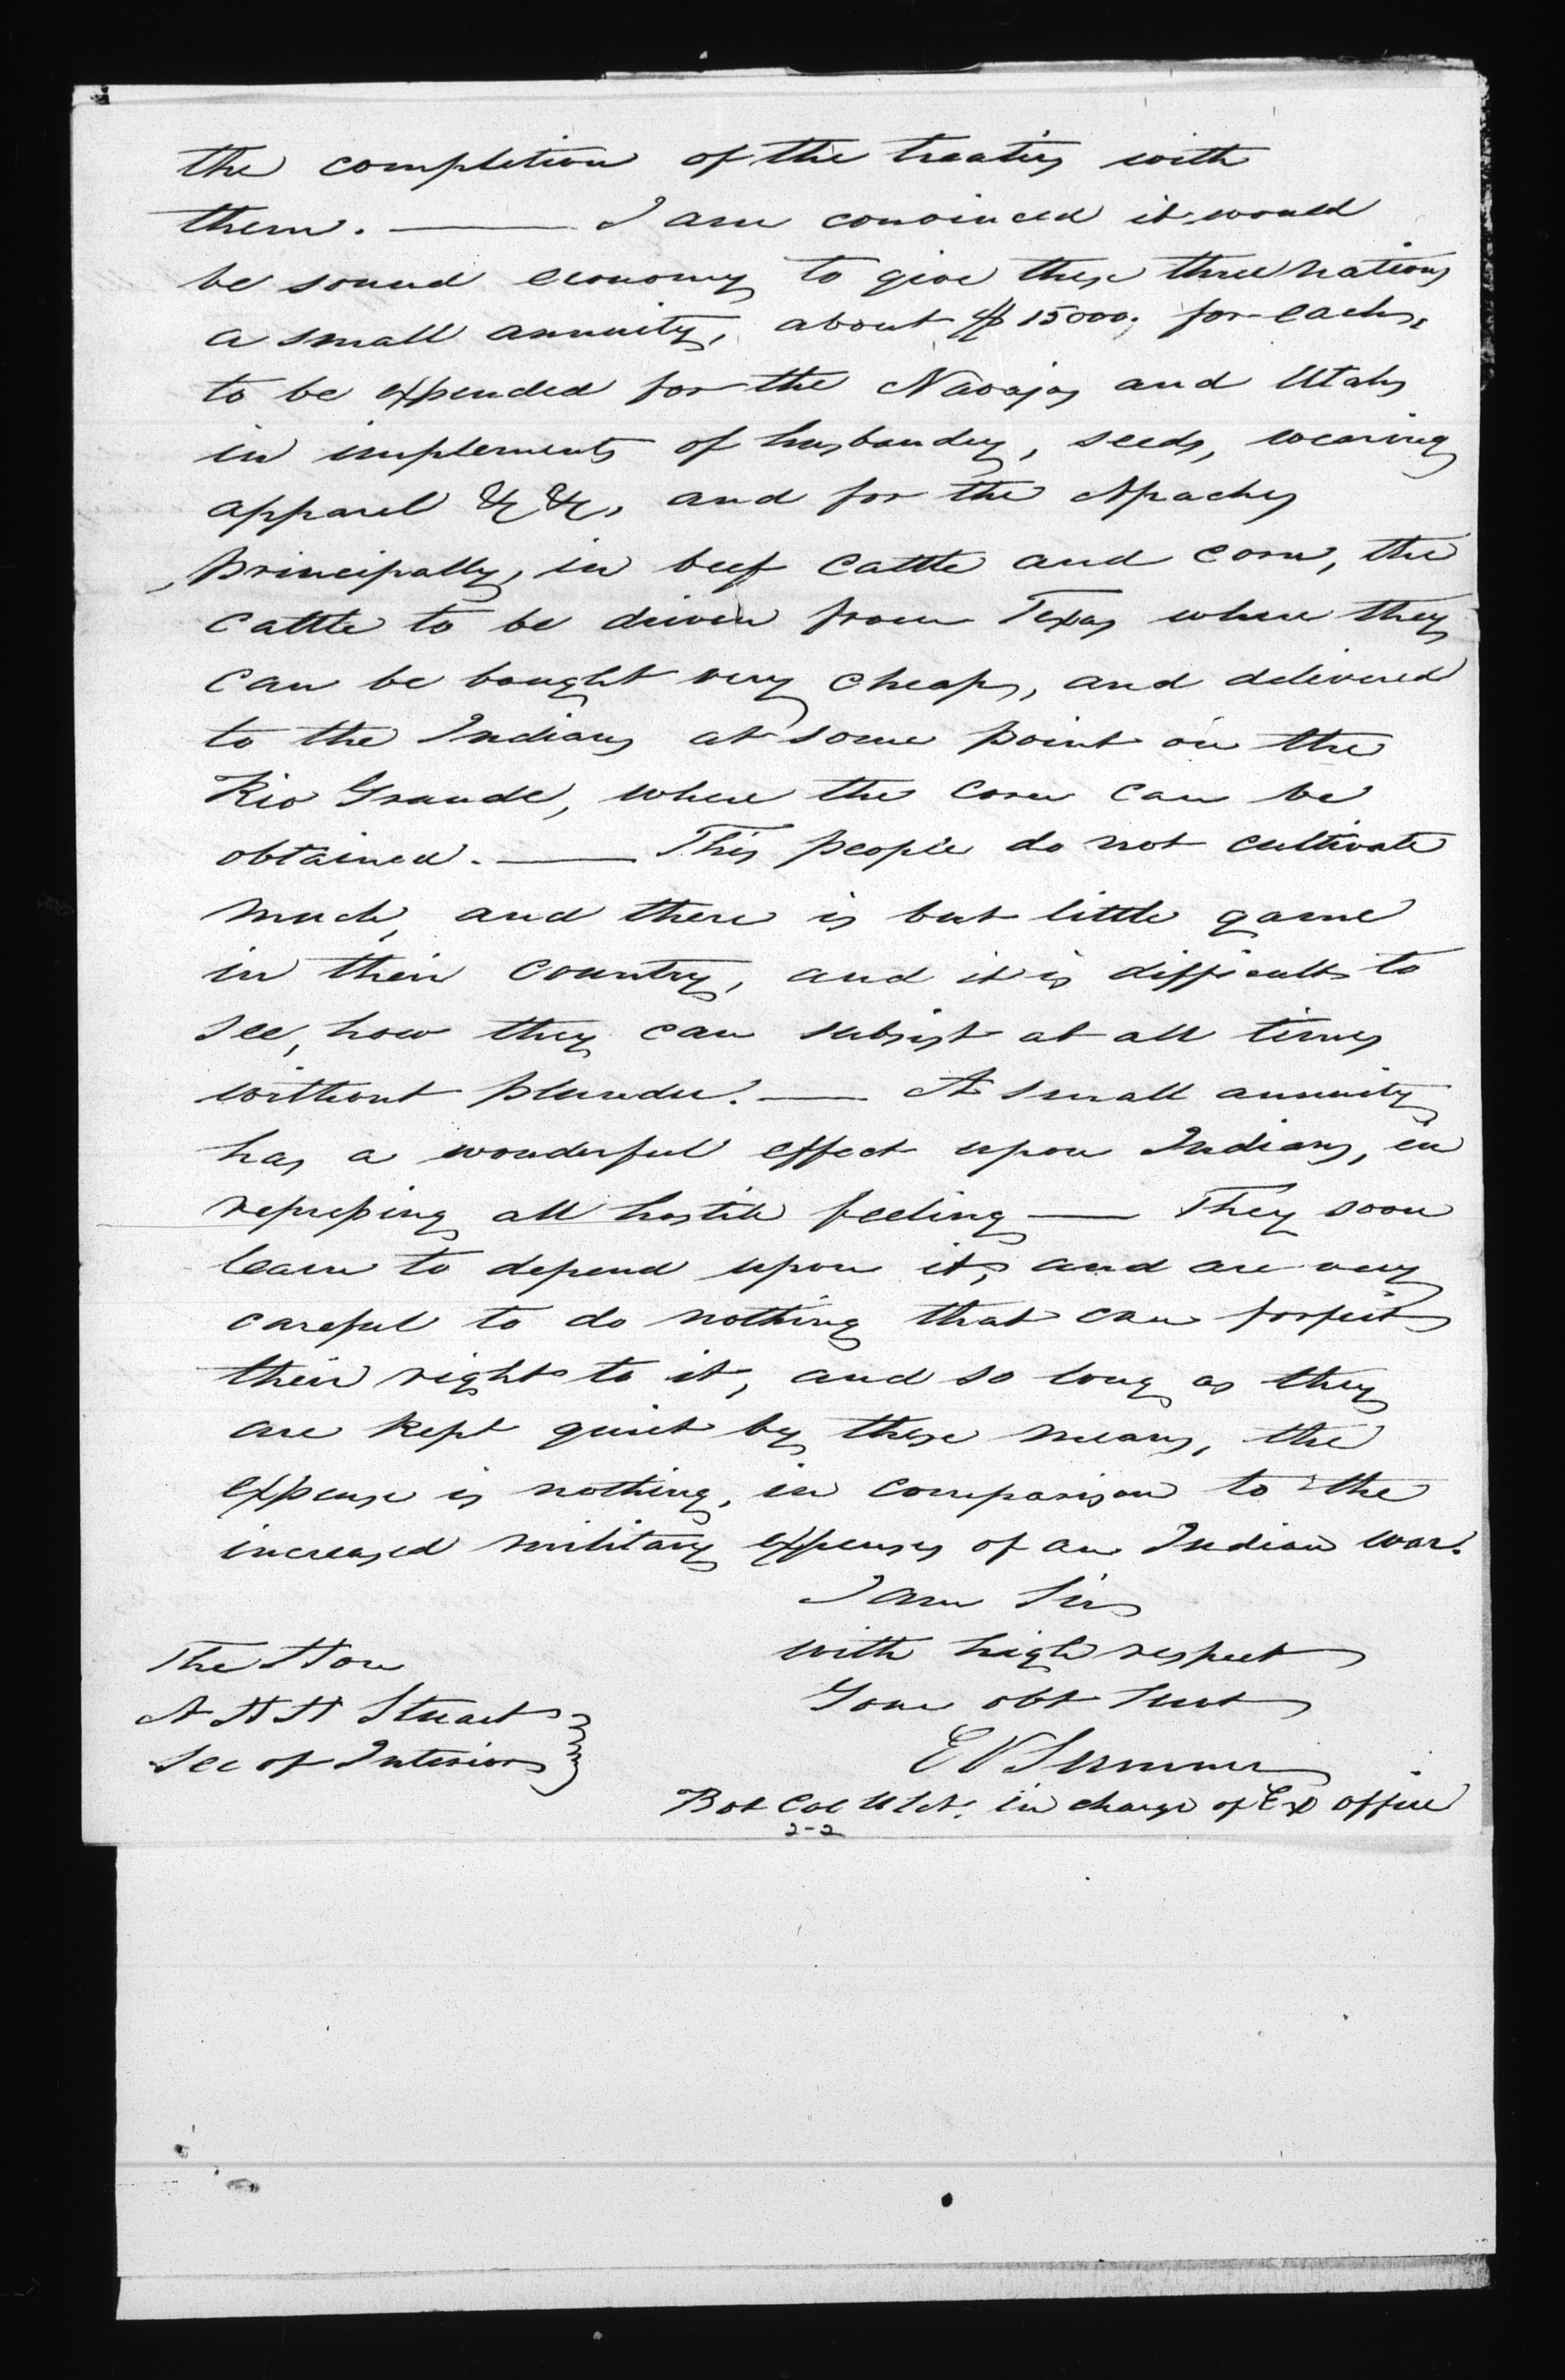 the completion of the treaties with
them. — I am convinced it would
be sound economy to give these three nations
a small annuity, about $15000. for each,
to be expended for the Navajos and Utahs
in implements of husbandry, seeds, wearing
apparel &c &c, and for the Apaches
principally, in beef cattle and corn, the
cattle to be driven from Texas where they
can be bought very cheap, and delivered
to the Indians at some point on the
Rio Grande, where the corn can be
obtained. — This people do not cultivate
much, and there is but little game
in their country, and it is difficult to
see, how they can subsist at all times
without plunder. — A small annuity
has a wonderful effect upon Indians, in
repressing all hostile feeling — They soon
learn to depend upon it, and are very
careful to do nothing that can forfeit
their right to it, and so long as they
are kept quiet by these means, the
expense is nothing, in comparison to the
increased military expenses of an Indian war.
I am Sir
with high respect
Your obt Servt
E V Sumner
Bvt Col U S A. in charge of Ex office
The Hon
A H H Stuart
Sec of Interior
2-2